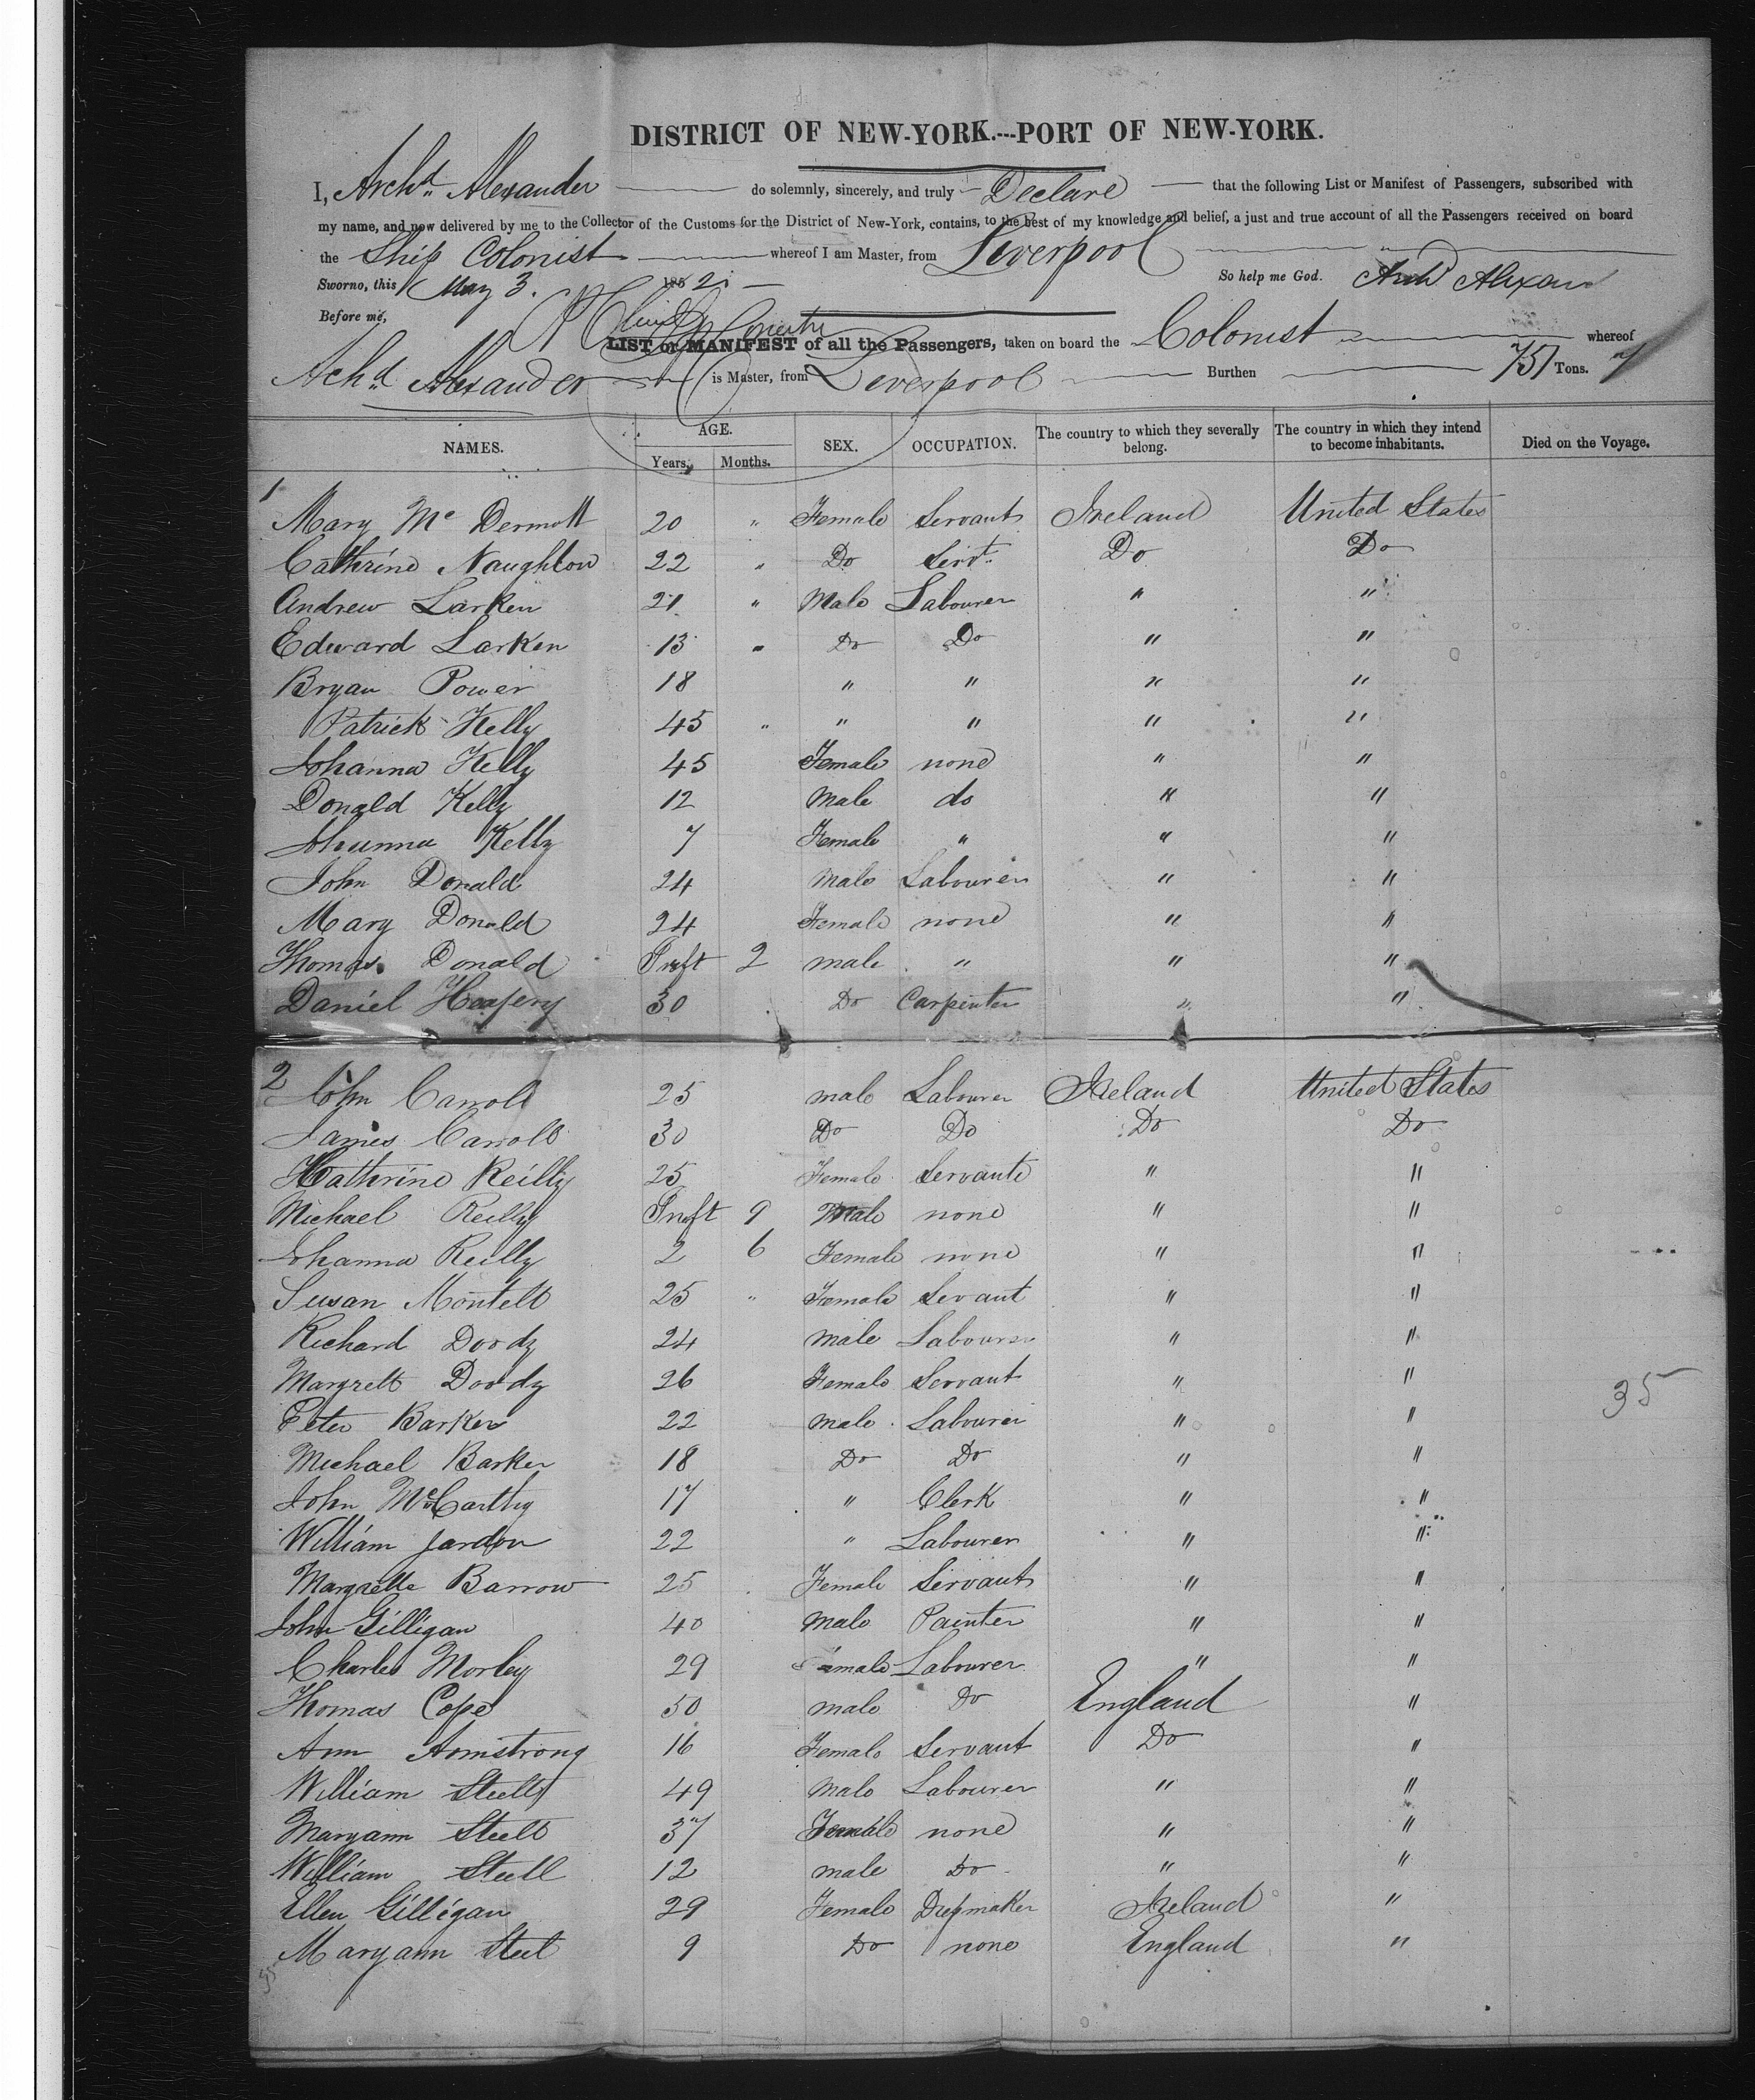 DISTRICT OF NEW-YORK.---PORT OF NEW-YORK.
I, Archd. Alexander do solemnly, sincerely, and truly Declare that the following List or Manifest of Passengers, subscribed with
my name, and now delivered by me to the Collector of the Customs for the District of New-York, contains, to the best of my knowledge and belief, a just and true account of all the Passengers received on board
the Ship Colonist whereof I am Master, from Liverpool
Sworno, this May 3. 1852 So help me God. Archd Alexan
Before me,
LIST or MANIFEST of all the Passengers, taken on board the Colonist whereof
Achd Alexander is Master, from Liverpool Burthen 751 Tons.
NAMES. AGE. Years, Months. SEX. OCCUPATION. The country to which they severally belong. The country in which they intend to become inhabitants. Died on the Voyage.
1
Mary Mc Dermott 20 " Female Servant Ireland United States
Cathrine Naughton 22 " Do Servt. Do Do
Andrew Larken 21 " Male Labourer " "
Edward Larken 13 " Do Do " "
Bryan Power 18 " " " "
Patrick Kelly 45 " " " " "
Johanna Kelly 45 Female none " "
Donald Kelly 12 Male do " "
Johanna Kelly 7 Female " " "
John Donald 24 Male Labourer " "
Mary Donald 24 Female none " "
Thomas Donald Inft 2 male " " "
Daniel 30 Do Carpenter " "
2
John Carroll 25 male Labourer Ireland United States
James Carroll 30 Do Do Do Do
Kathrine Reilly 25 Female Servante " "
Michael Reilly Inft 9 Male none " "
Johanna Reilly 2 6 Female none " "
Susan Montell 25 " Female Sevant " "
Richard Doody 24 male Labourer " "
Margrett Doody 26 Female Servant " "
Peter Barker 22 male Labourer " " 35
Michael Barker 18 Do Do " "
John McCarthy 17 " Clerk " "
William Jardon 22 " Labourer " "
Margrette Barrow 25 Female Servant " "
John Gilligan 40 Male Painter " "
Charles Morley 29 male Labourer " "
Thomas Cope 50 male Do England "
Ann Armstrong 16 Female Servant Do "
William Steell 49 Male Labourer " "
Maryann Steell 37 Female none " "
William Steell 12 male Do " "
Ellen Gilligan 29 Female Dressmaker Ireland "
Maryann Steel 9 Do none England "
35